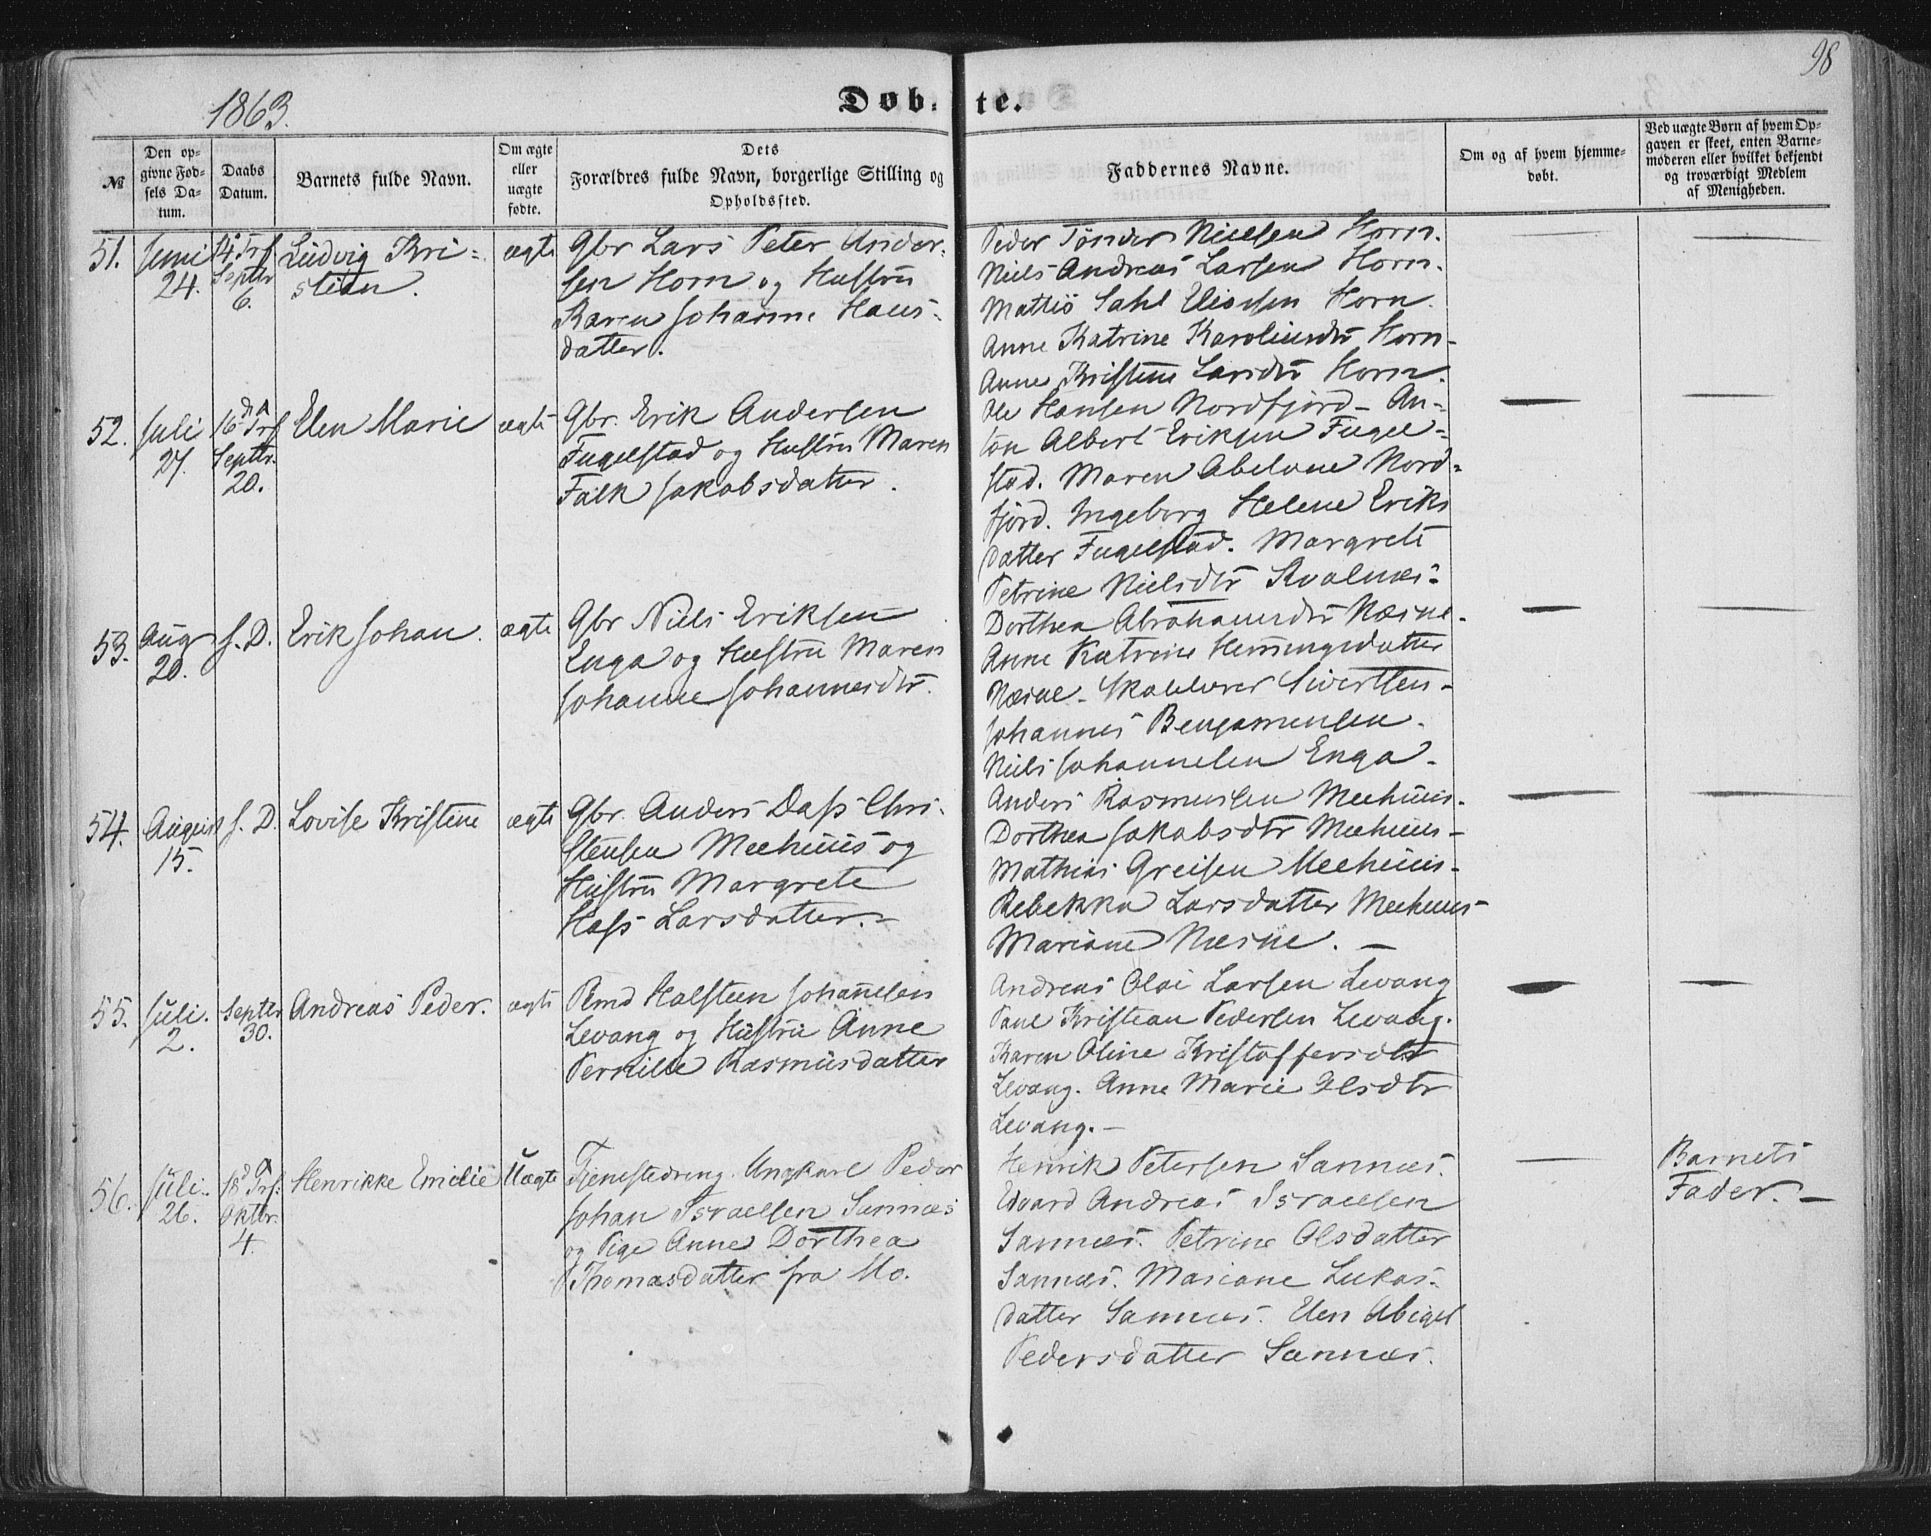 98
1863.
Døbte.
№
Den op-
givne Fød-
sels Da-
tum.
Daabs
Datum.
Barnets fulde Navn.
Om ægte
eller
uægte
fødte.
Dets
Forældres fulde Navn, borgerlige Stilling og
Opholdssted.
Faddernes Navne.
Om og af hvem hjemme-
døbt.
Ved uægte Børn af hvem Op-
gaven er skeet, enten Barne-
moderen eller hvilket bekjendt
og troværdigt Medlem
af Menigheden.
51.
Juni
24.
14 Trf
Septbr
6.
Ludvig Kri-
stian.
ægte
Gbr Lars Peter Ander-
sen Horn og Hustru
Karen Johanne Hans-
datter.
Peder Tønder Nielsen Horn.
Niels Andreas Larsen Horn.
Dahl Horn.
Anne Katrine Horn-
Anne Kristine Larsdtr Horn.
52.
Juli
27.
16 Trf
Septbr.
20.
Elen Marie
ægte
Gbr. Erik Andersen
Fugelstad og Hustru Maren
Falk Jakobsdatter.
Ole Hansen Nordfjord- An-
ton Albert Eriksen Fugel-
stad. Maren Abelone Nord-
fjord. Ingeborg Helene Eriks
datter Fugelstad. Margrete
Petrine Nielsdtr Kvalnæs-
53.
Aug
20.
s. D.
Erik Johan.
ægte
Gbr Niels Eriksen
Enga og Hustru Maren
Johanne Johannesdtr.
Dorthea Abrahamsdtr Næsne.
Anne Katrine Henningsdatter
Næsne- Sivertsen-
Johannes Benjaminsen.
Niels Johannesen Enga-
54.
August
15.
s. D.
Lovise Kristine
ægte
Gbr. Anders Dass Chri-
stensen Meehuus og
Hustru Margrete
Hass Larsdatter.-
Anders Rasmussen Meehuus.
Dorthea Jakobsdtr Meehuus-
Mathias Greisen Meehuus-
Rebekka Larsdatter Meehuus-
Mariane Næsne. -
55.
Juli.
2.
Septbr
30.
Andreas Peder.
ægte
Holsteen Johansen
Levang og Hustru Anne
Pernille Rasmusdatter
Andreas Olai Larsen Levang
Paul Kristian Pedersen Levang.
Karen Oline Kristoffersdtr
Levang. Anne Marie Olsdtr
Levang.-
56.
Juli.
26.
18 Trf:
Oktbr.
4.
Henrikke Emilie
Uægte
Tjenestedreng. Ungkarl Peder
Johan Israelsen Sannæs
og Pige Anne Dorthea
Thomasdatter fra Mo.
Henrik Petersen Sannæs.
Edvard Andreas Israelsen
Sannæs. Petrine Olsdatter
Sannæs. Mariane Lukas-
datter Sannæs. Elen Abigel
Pedersdatter Sannæs.
Barnets
Fader.-